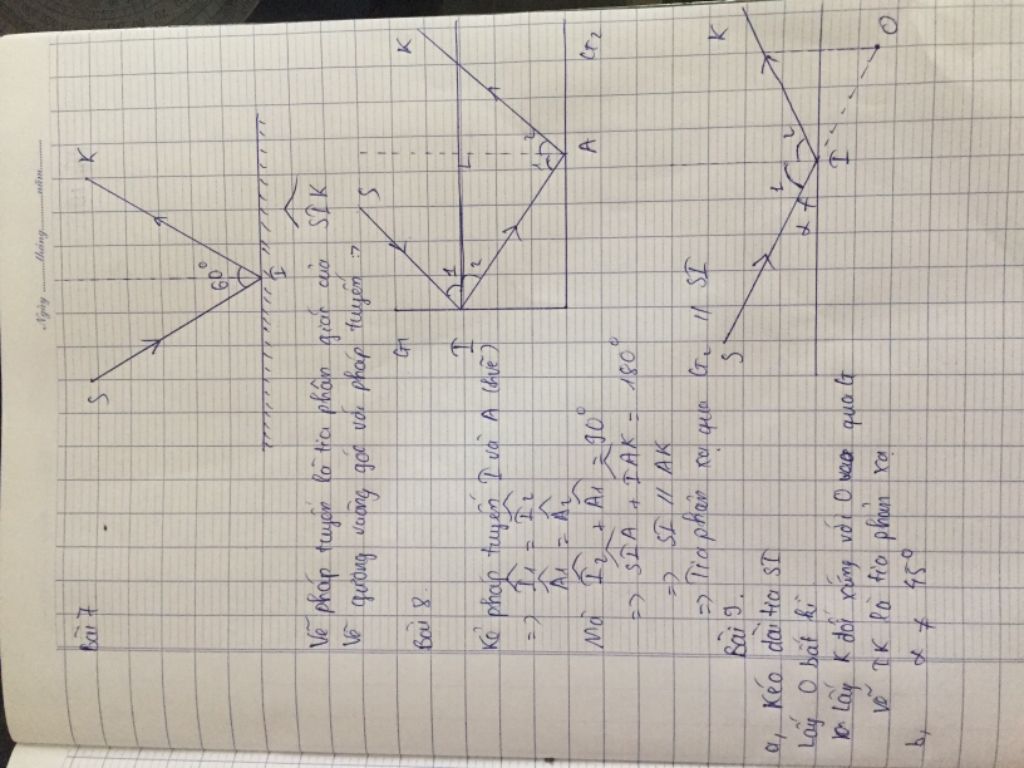 Ngày ........tháng........năm........
Bài 7
S
K
60°
I
Vẽ pháp tuyến là tia phân giác của SIK
Vẽ gương vuông góc với pháp tuyến
Bài 8.
G1
G2
S
K
I
1
2
1
2
A
Kẻ pháp tuyến I và A (hvẽ)
=> I1 = I2
A1 = A2
Mà I2 + A1 = 90°
=> SIA + IAK = 180°
=> SI // AK
=> Tia phản xạ qua G2 // SI
Bài 9.
a, Kéo dài tia SI
Lấy O bất kì
Lấy K đối xứng với O qua G
vẽ IK là tia phản xạ
b, α ≠ 45°
S
K
α
1
2
I
O